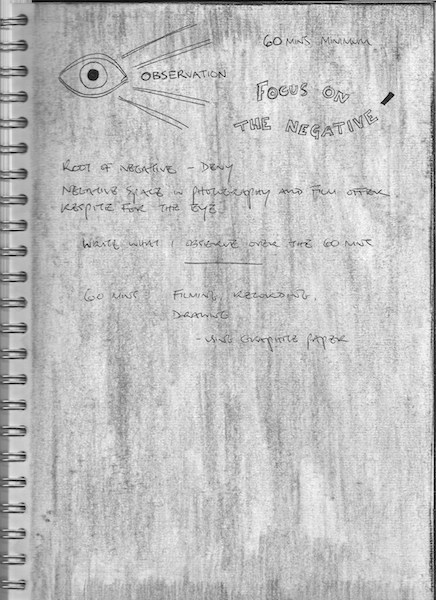 60 MINS MINIMUM
OBSERVATION
FOCUS ON
THE NEGATIVE!
ROOT OF NEGATIVE - DENY
NEGATIVE SPACE IN PHOTOGRAPHY AND FILM OFFER
RESPITE FOR THE EYE.
WRITE WHAT I OBSERVE OVER THE 60 MINS
60 MINS FILMING, RECORDING,
DRAWING
- USING GRAPHITE PAPER